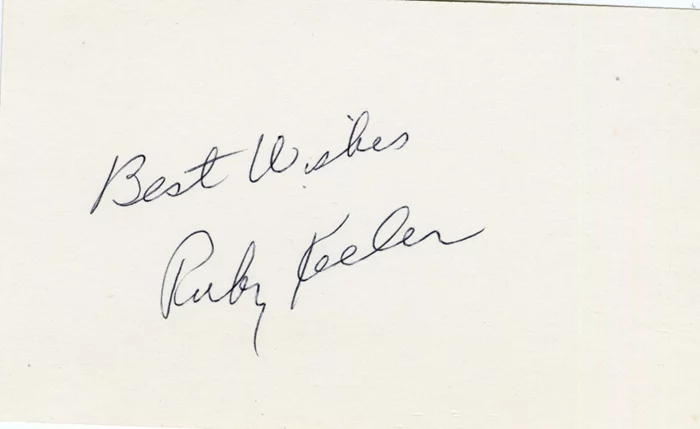 Best Wishes
Ruby Keeler